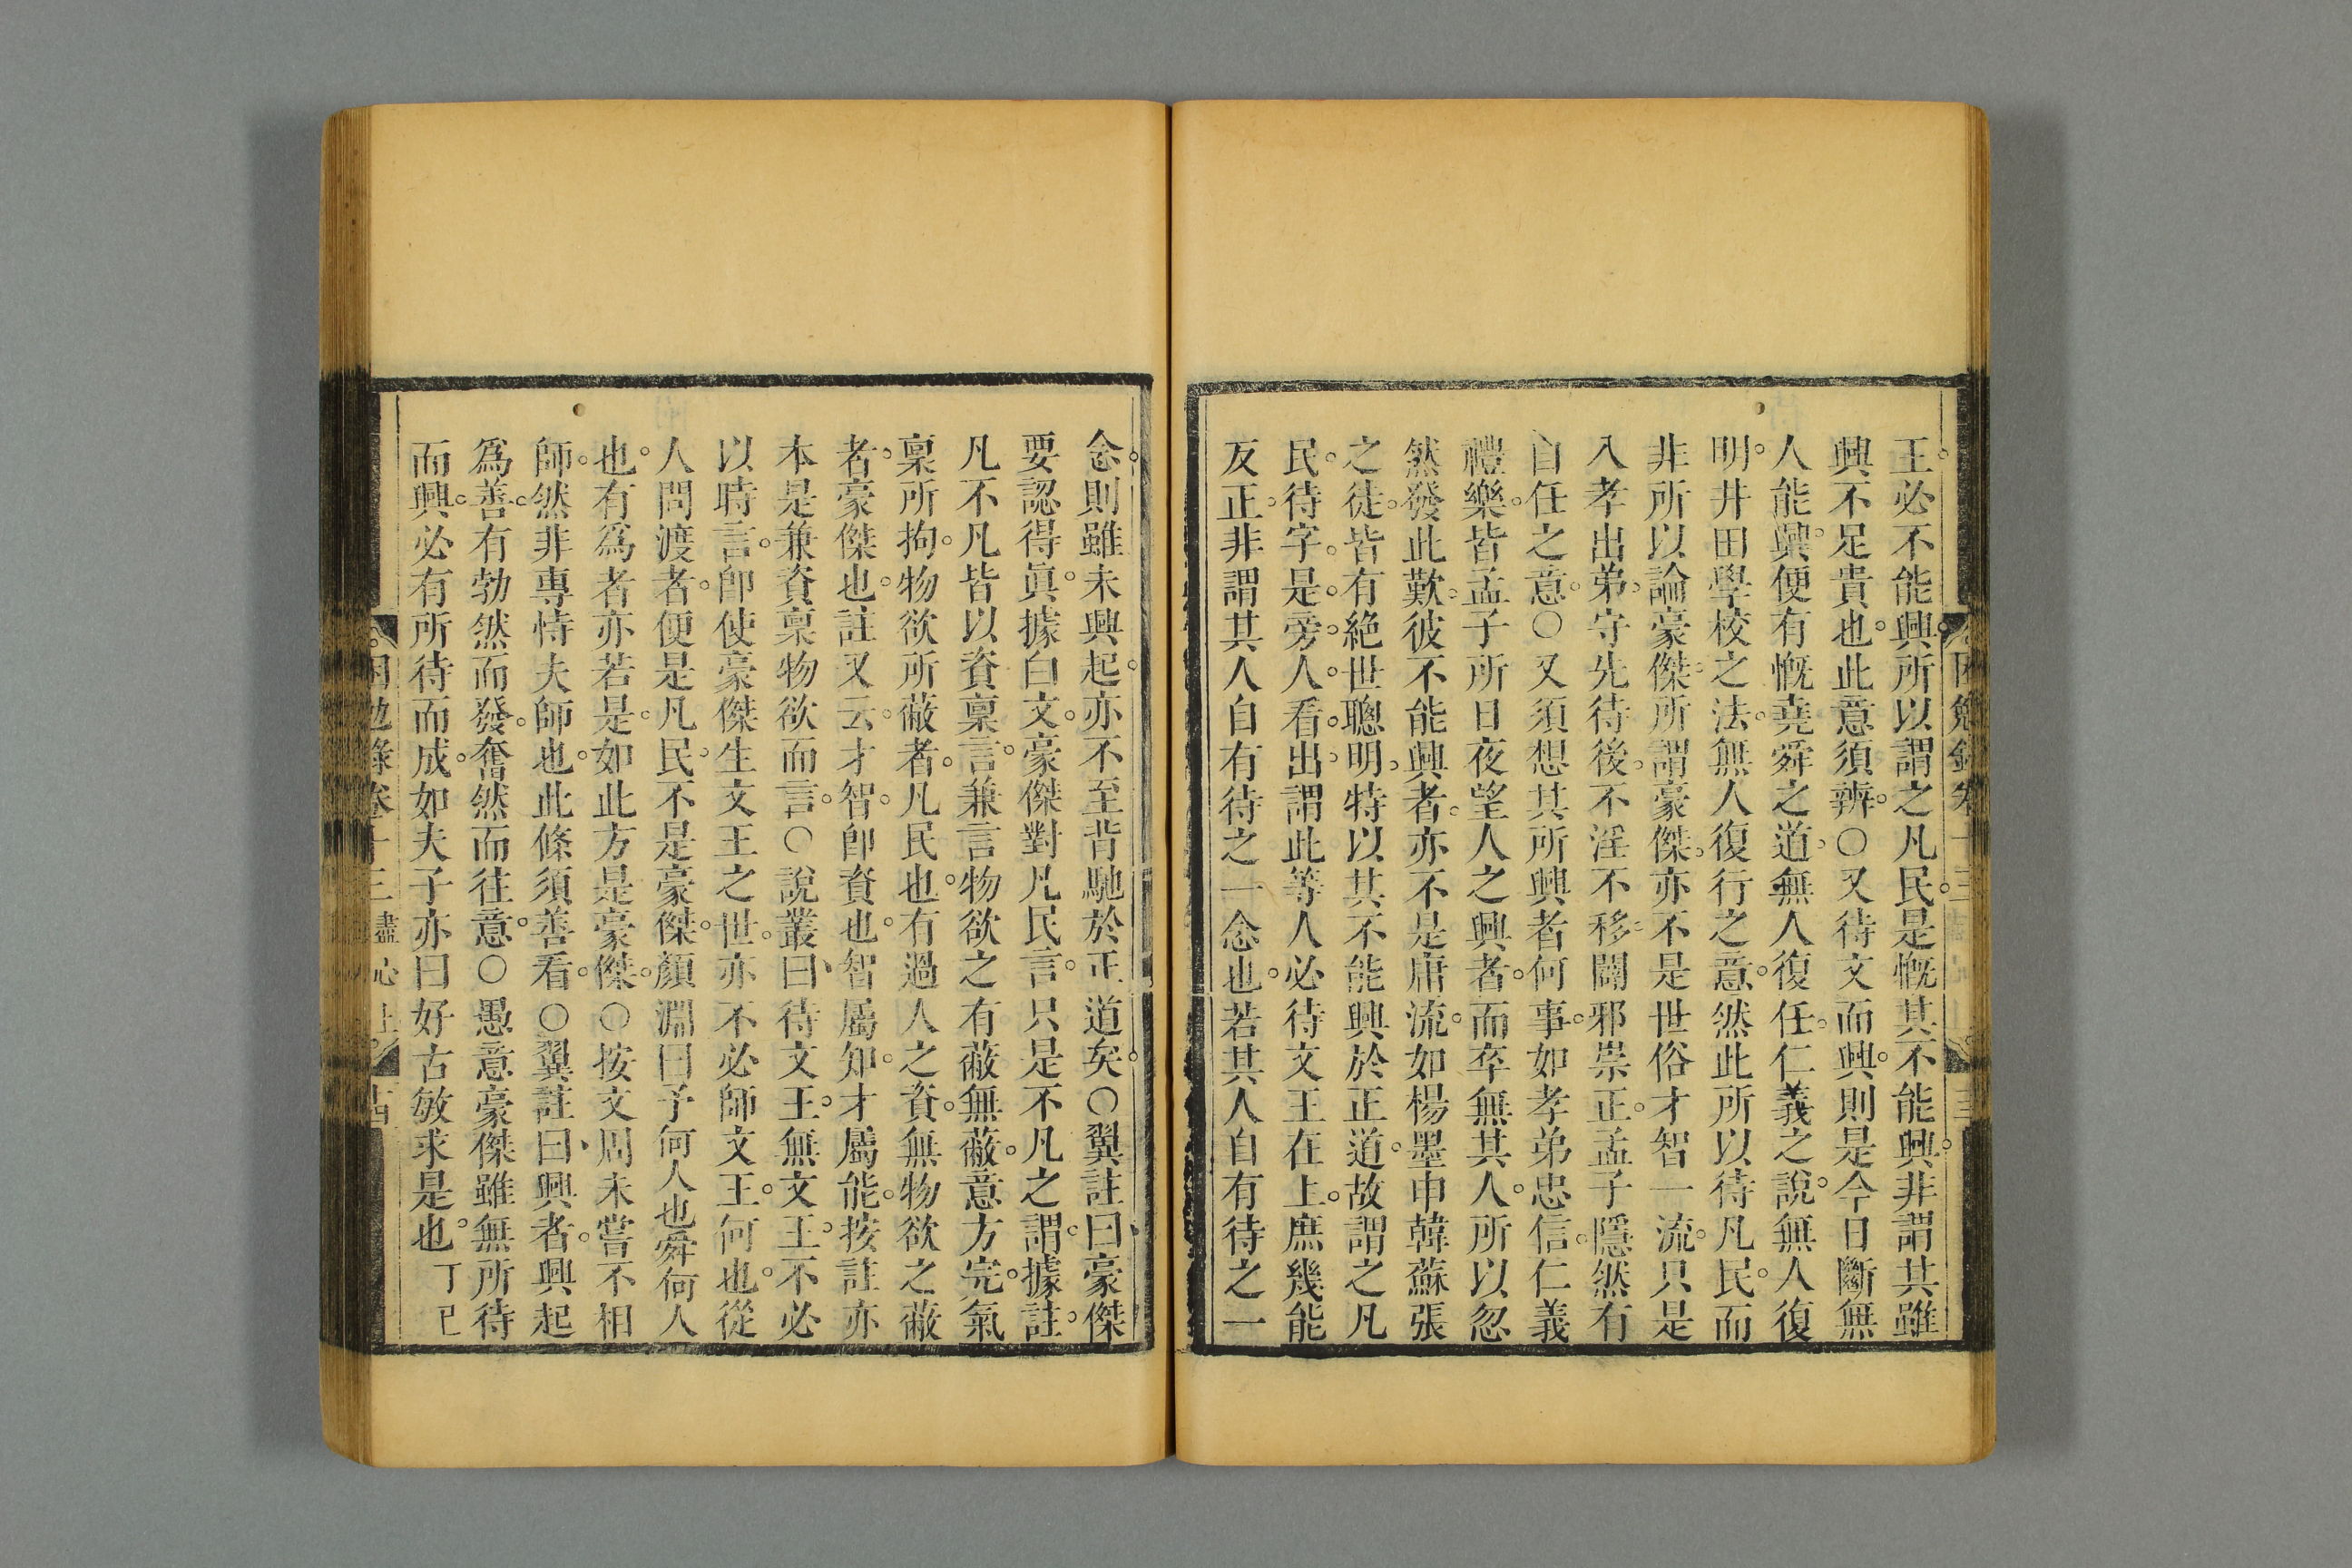 王必不能興所以謂之凡民是慨其不能興非謂其雖
興不足貴也此意須辨○又待文而興則是今日斷無
人能興便有慨堯舜之道無人復任仁義之說無人復
明井田學校之法無人復行之意然此所以待凡民而
非所以論豪傑所謂豪傑亦不是世俗才智一流只是
入孝出弟守先待後不淫不移闢邪崇正孟子隱然有
自任之意○又須想其所興者何事如孝弟忠信仁義
禮樂皆孟子所日夜望人之興者而卒無其人所以忽
然發此歎彼不能興者亦不是庸流如楊墨申韓蘇張
之徒皆有絕世聰明特以其不能興於正道故謂之凡
民待字是旁人看出謂此等人必待文王在上庶幾能
友正非謂其人自有待之一念也若其人自有待之一
念則雖未興起亦不至背馳於正道矣○翼註曰豪傑
要認得眞據白文豪傑對凡民言只是不凡之謂據註
凡不凡皆以資稟言兼言物欲之有蔽無蔽意方完氣
稟所拘物欲所蔽者凡民也有過人之資無物欲之蔽
者豪傑也註又云才智卽資也智屬知才屬能按註亦
本是兼資稟物欲而言○說叢曰待文王無文王不必
以時言卽使豪傑生文王之世亦不必師文王何也從
人問渡者便是凡民不是豪傑顏淵曰予何人也舜何人
也有爲者亦若是如此方是豪傑○按文周未嘗不相
師然非專恃夫師也此條須善看○翼註曰興者興起
爲善有勃然而發奮然而往意○愚意豪傑雖無所待
而興必有所待而成如夫子亦曰好古敏求是也 丁巳
困勉錄卷十三 盡心上 十四